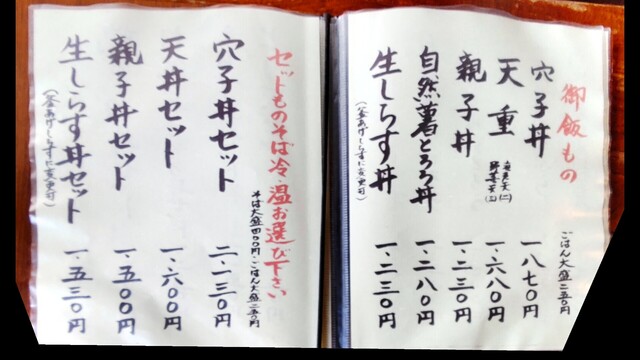 御飯もの
穴子丼 一.八七〇円
天重 海老天(二) 野菜天(三) 一.六八〇円
親子丼 一.二三〇円
自然薯とろろ丼 一.二八〇円
生しらす丼 一.二三〇円
(釜あげしらすに変更可)
ごはん大盛二五〇円
セットものそば冷・温お選び下さい
そば大盛四〇〇円・ごはん大盛二五〇円
穴子丼セット 二.一三〇円
天丼セット 一.六〇〇円
親子丼セット 一.五〇〇円
生しらす丼セット 一.五三〇円
(釜あげしらすに変更可)